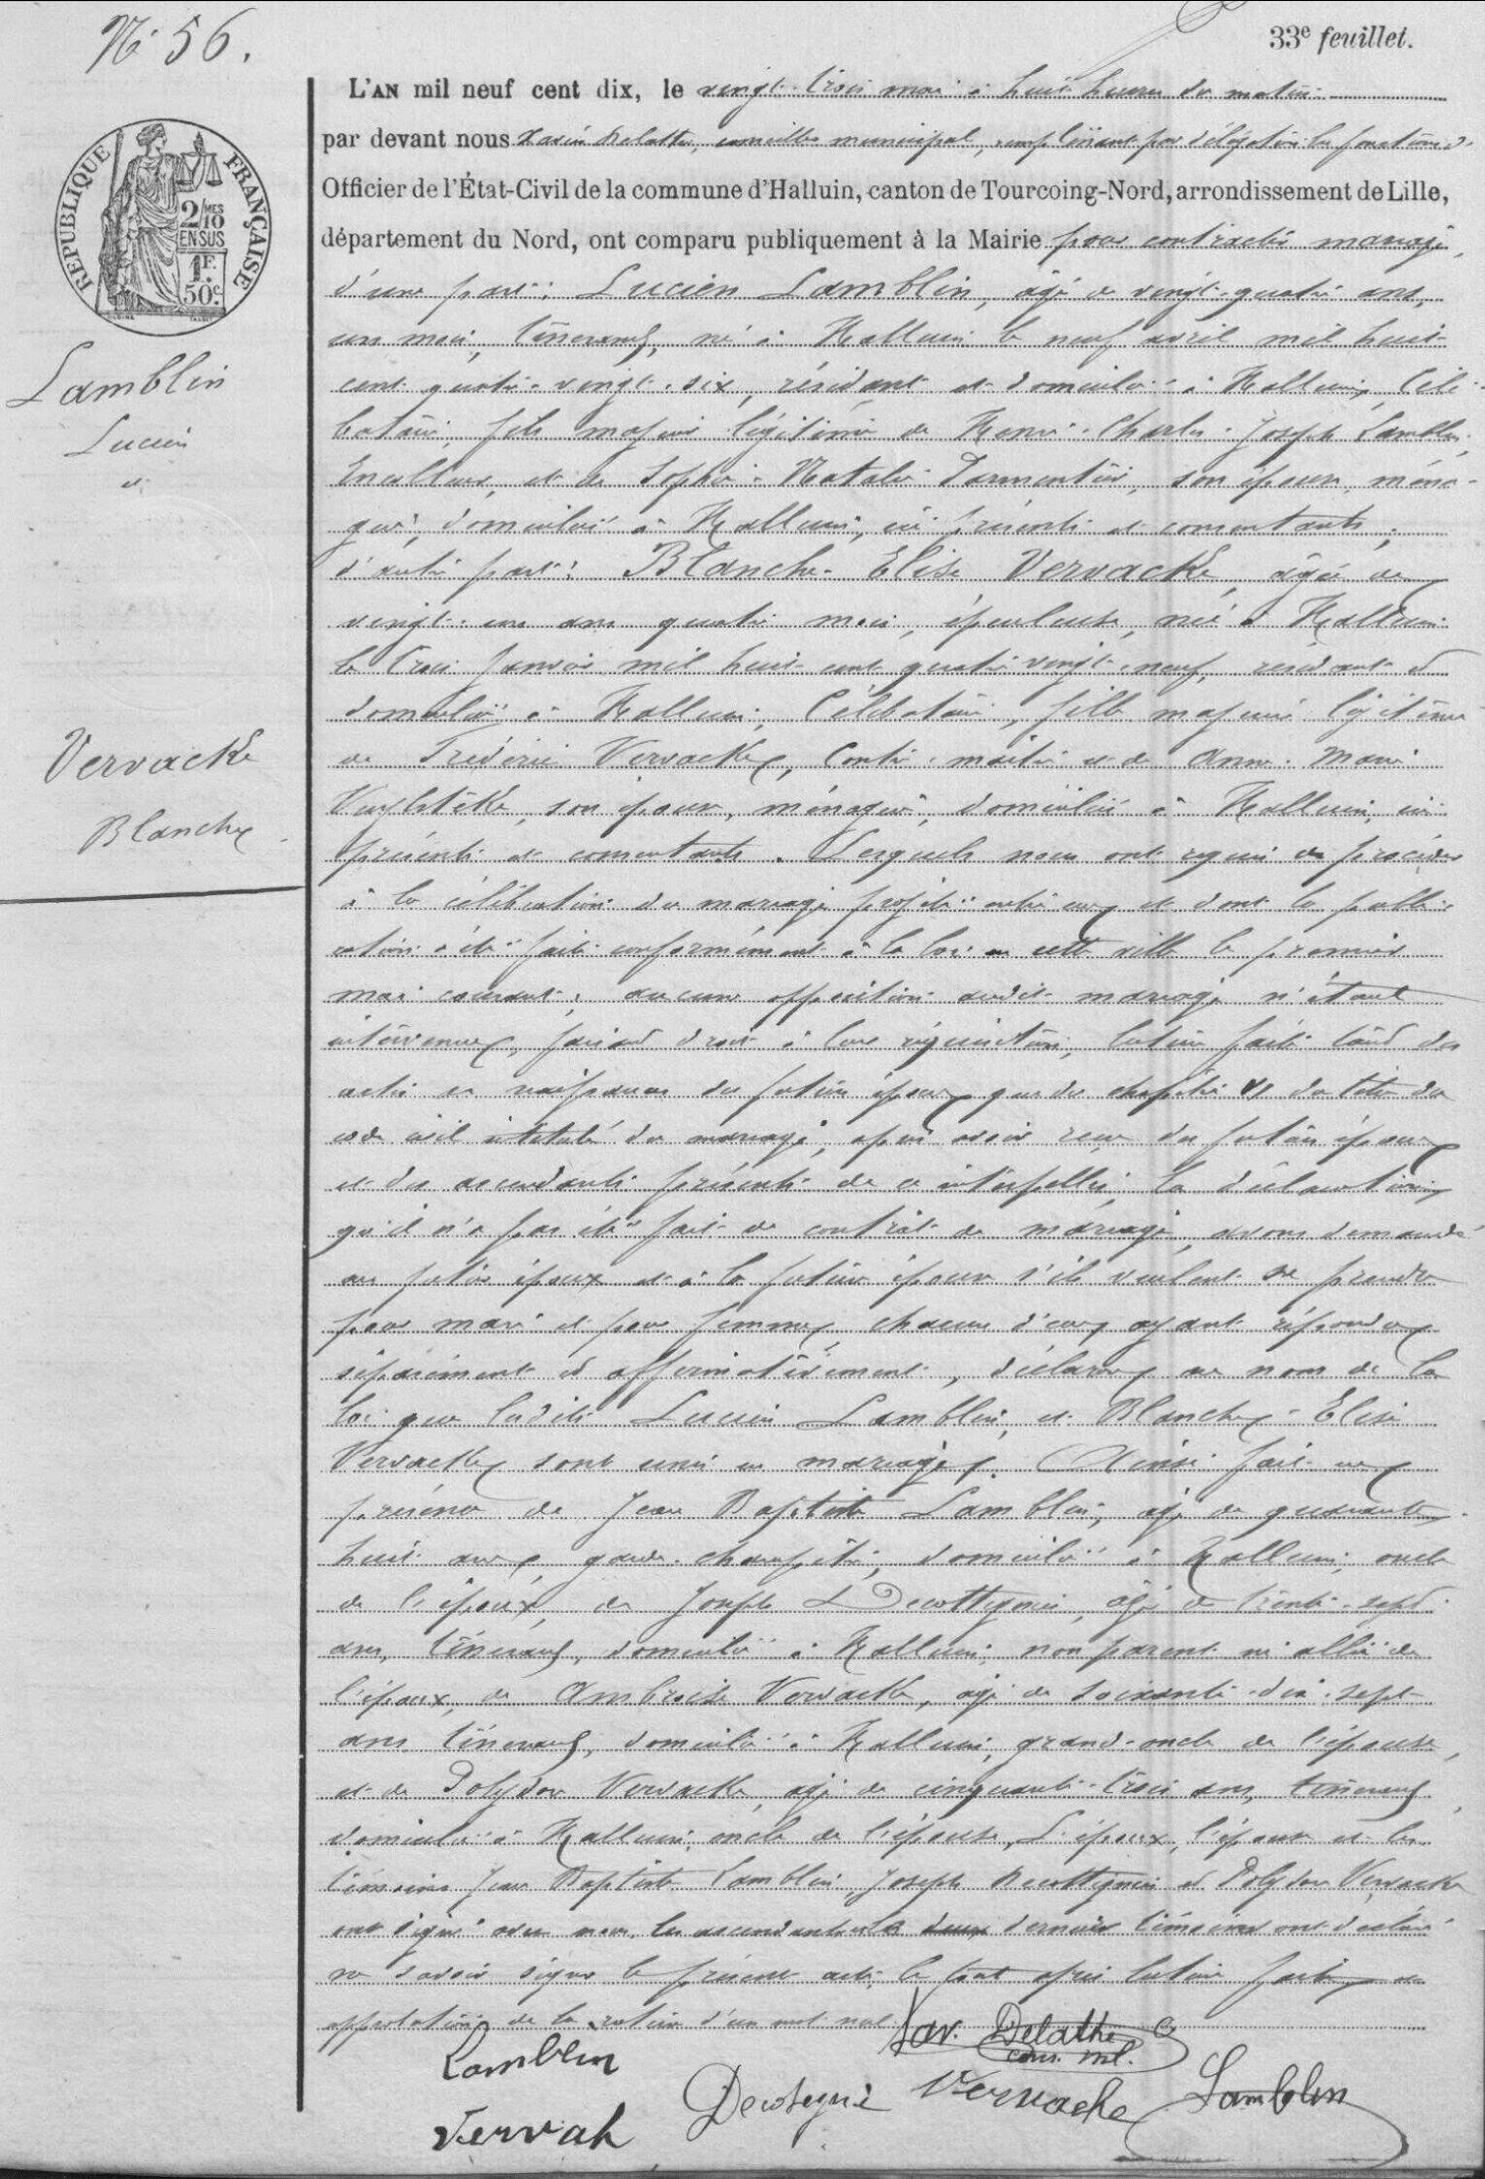 N° 56.
33e feuillet.
RÉPUBLIQUE FRANÇAISE
2/10 MES
EN SUS
1F.
50c.
Lamblin
Lucien
et
Vervacke
Blanche
L'AN mil neuf cent dix, le vingt-trois mai à huit heures du matin
par devant nous Xavier Delattre, conseiller municipal, remplissant par délégation les fonctions d'
Officier de l'État-Civil de la commune d'Halluin, canton de Tourcoing-Nord, arrondissement de Lille,
département du Nord, ont comparu publiquement à la Mairie pour contracter mariage,
d'une part: Lucien Lamblin, âgé de vingt-quatre ans,
un mois, tisserand, né à Halluin le neuf avril mil huit
cent quatre-vingt-six, résidant et domicilié à Halluin, céli-
bataire, fils majeur légitime de Henri-Charles-Joseph Lamblin,
encolleur, et de Sophie-Natalie Parmentier, son épouse, ména-
gère, domiciliés à Halluin, ici présents et consentants;
d'autre part: Blanche-Elise Vervacke, âgée de
vingt-un ans quatre mois, épeuleuse, née à Halluin
le trois janvier mil huit cent quatre vingt-neuf, résidant et
domiciliée à Halluin, célibataire, fille majeure légitime
de Fréderic Vervacke, contre-maître et de Anne-Marie
son épouse, ménagère, domiciliés à Halluin, ici
présents et consentants. Lesquels nous ont requis de procéder
à la célébration du mariage projeté entre eux et dont la publi-
cation a été faite conformément à la loi en cette ville le premier
mai courant; aucune opposition audit mariage n'étant
intervenue, faisant droit à leur réquisition, lecture faite tant des
actes de naissances des futurs époux que du chapitre VI du titre du
code civil intitulé du mariage, après avoir reçu des futurs époux
et des ascendants présents de ce interpellés, la déclaration
qu'il n'a pas été fait de contrat de mariage, avons demandé
au futur époux et à la future épouse s'ils veulent se prendre
pour mari et pour femme, chacun d'eux ayant répondu
séparément et affirmativement, déclarons au nom de la
loi que lesdits Lucien Lamblin, et Blanche-Elise
Vervacke sont unis en mariage. Ainsi fait en
présence de Jean Baptiste Lamblin, âgé de quarante-
huit ans, garde-champêtre, domicilié à Halluin, oncle
de l'époux, de Joseph Decottignies, âgé de trente-sept
ans, tisserand, domicilié à Halluin, non parent ni allié de
l'époux, de Ambroise Vervacke, âgé de soixante-dix-sept
ans tisserand, domicilié à Halluin, grand-oncle de l'épouse,
et de Polydor Vervacke, âgé de cinquante-trois ans, tisserand,
domicilié à Halluin, oncle de l'épouse. L'époux, l'épouse et les
témoins Jean Baptiste Lamblin, Joseph Decottignies et Polydor Vervacke
ont signé avec nous, les ascendants et le deux dernier témoins ont déclaré
ne savoir signer le présent acte, le tout après lecture faite et
approbation de la rature d'un mot nul.
Xav. Delattre
cons. ml.
Lamblin
Decotegnie Vervacke Lamblin
Vervak